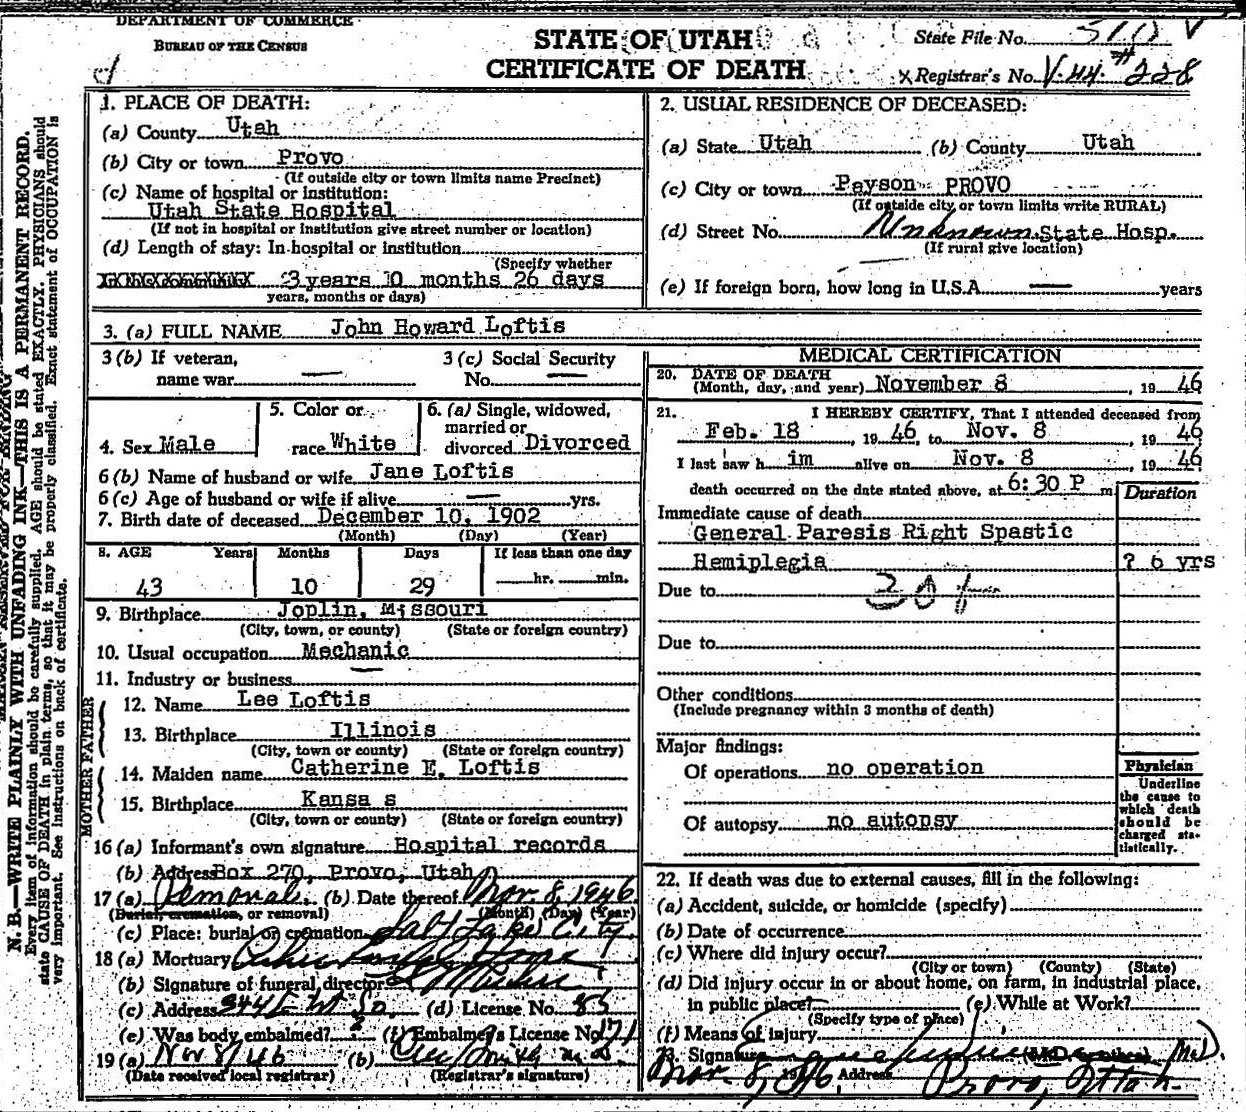 DEPARTMENT OF COMMERCE
BUREAU OF THE CENSUS
STATE OF UTAH
CERTIFICATE OF DEATH
State File No.
Registrar's No. V-44- #228
N. B.—WRITE PLAINLY WITH UNFADING INK—THIS IS A PERMANENT RECORD.
Every item of information should be carefully supplied. AGE should be stated EXACTLY. PHYSICIANS should
state CAUSE OF DEATH in plain terms, so that it may be properly classified. Exact statement of OCCUPATION is
very important. See instructions on back of certificate.
1. PLACE OF DEATH:
(a) County Utah
(b) City or town Provo
(If outside city or town limits name Precinct)
(c) Name of hospital or institution:
Utah State Hospital
(If not in hospital or institution give street number or location)
(d) Length of stay: In hospital or institution
(Specify whether
3 years 0 months 26 days
years, months or days)
2. USUAL RESIDENCE OF DECEASED:
(a) State Utah (b) County Utah
(c) City or town Payson PROVO
(If outside city or town limits write RURAL)
(d) Street No. Unknown State Hosp.
(If rural give location)
(e) If foreign born, how long in U.S.A. — years
3. (a) FULL NAME John Howard Loftis
3 (b) If veteran, name war —
3 (c) Social Security No. —
4. Sex Male
5. Color or race White
6. (a) Single, widowed, married or divorced Divorced
6 (b) Name of husband or wife Jane Loftis
6 (c) Age of husband or wife if alive — yrs.
7. Birth date of deceased December 10, 1902
(Month) (Day) (Year)
8. AGE Years Months Days If less than one day
43 10 29 hr. min.
9. Birthplace Joplin, Missouri
(City, town, or county) (State or foreign country)
10. Usual occupation Mechanic
11. Industry or business —
FATHER
12. Name Lee Loftis
13. Birthplace Illinois
(City, town or county) (State or foreign country)
MOTHER
14. Maiden name Catherine E. Loftis
15. Birthplace Kansa s
(City, town or county) (State or foreign country)
16 (a) Informant's own signature Hospital records
(b) Address Box 270, Provo, Utah
17 (a) Removal (b) Date thereof Nov. 8, 1946
(Burial, cremation, or removal) (Month) (Day) (Year)
(c) Place: burial or cremation Salt Lake City
18 (a) Mortuary
(b) Signature of funeral director
(c) Address 344 E (d) License No. 85
(e) Was body embalmed? (f) Embalmer's License No. 171
19 (a) Nov 8/46 (b)
(Date received local registrar) (Registrar's signature)
MEDICAL CERTIFICATION
20. DATE OF DEATH
(Month, day, and year) November 8, 1946
21. I HEREBY CERTIFY, That I attended deceased from
Feb. 18, 1946, to Nov. 8, 1946
I last saw h im alive on Nov. 8, 1946
death occurred on the date stated above, at 6:30 P m.
Duration
Immediate cause of death
General Paresis Right Spastic
Hemiplegia ? 6 yrs
Due to
Due to
Other conditions
(Include pregnancy within 3 months of death)
Major findings:
Of operations no operation
Of autopsy no autopsy
Physician
Underline
the cause to
which death
should be
charged sta-
tistically.
22. If death was due to external causes, fill in the following:
(a) Accident, suicide, or homicide (specify)
(b) Date of occurrence
(c) Where did injury occur?
(City or town) (County) (State)
(d) Did injury occur in or about home, on farm, in industrial place,
in public place? (e) While at Work?
(Specify type of place)
(f) Means of injury
23. Signature M.D.
Nov. 8, 1946 Address Provo, Utah.